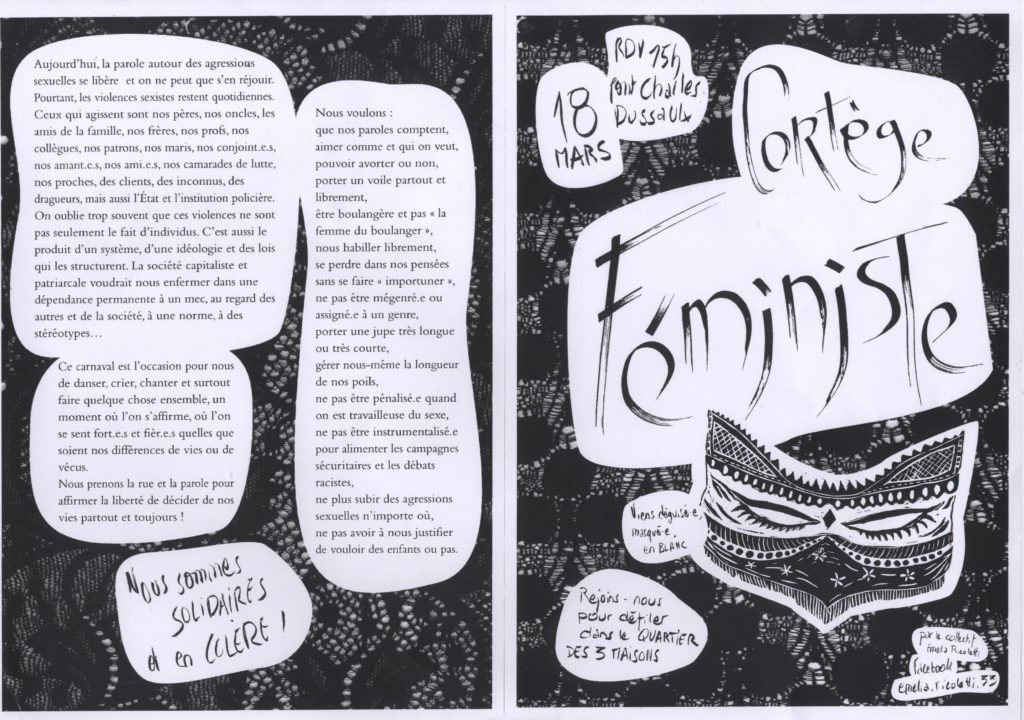 Aujourd'hui, la parole autour des agressions
sexuelles se libère et on ne peut que s'en réjouir.
Pourtant, les violences sexistes restent quotidiennes.
Ceux qui agissent sont nos pères, nos oncles, les
amis de la famille, nos frères, nos profs, nos
collègues, nos patrons, nos maris, nos conjoint.e.s,
nos amant.e.s, nos ami.e.s, nos camarades de lutte,
nos proches, des clients, des inconnus, des
dragueurs, mais aussi l'État et l'institution policière.
On oublie trop souvent que ces violences ne sont
pas seulement le fait d'individus. C'est aussi le
produit d'un système, d'une idéologie et des lois
qui les structurent. La société capitaliste et
patriarcale voudrait nous enfermer dans une
dépendance permanente à un mec, au regard des
autres et de la société, à une norme, à des
stéréotypes…
Ce carnaval est l'occasion pour nous
de danser, crier, chanter et surtout
faire quelque chose ensemble, un
moment où l'on s'affirme, où l'on
se sent fort.e.s et fièr.e.s quelles que
soient nos différences de vies ou de
vécus.
Nous prenons la rue et la parole pour
affirmer la liberté de décider de nos
vies partout et toujours !
Nous sommes
SOLIDAIRES
et en COLÈRE !
Nous voulons :
que nos paroles comptent,
aimer comme et qui on veut,
pouvoir avorter ou non,
porter un voile partout et
librement,
être boulangère et pas « la
femme du boulanger »,
nous habiller librement,
se perdre dans nos pensées
sans se faire « importuner »,
ne pas être mégenré.e ou
assigné.e à un genre,
porter une jupe très longue
ou très courte,
gérer nous-même la longueur
de nos poils,
ne pas être pénalisé.e quand
on est travailleuse du sexe,
ne pas être instrumentalisé.e
pour alimenter les campagnes
sécuritaires et les débats
racistes,
ne plus subir des agressions
sexuelles n'importe où,
ne pas avoir à nous justifier
de vouloir des enfants ou pas.
18
MARS
RDV 15h
Charles
Dussaulx
Cortège
Féministe
Viens déguisé·e,
masqué·e,
en BLANC
Rejoins-nous
pour défiler
dans le QUARTIER
DES 3 MAISONS
par le collectif
Emelia Ricoletti
facebook
emelia.ricoletti.33